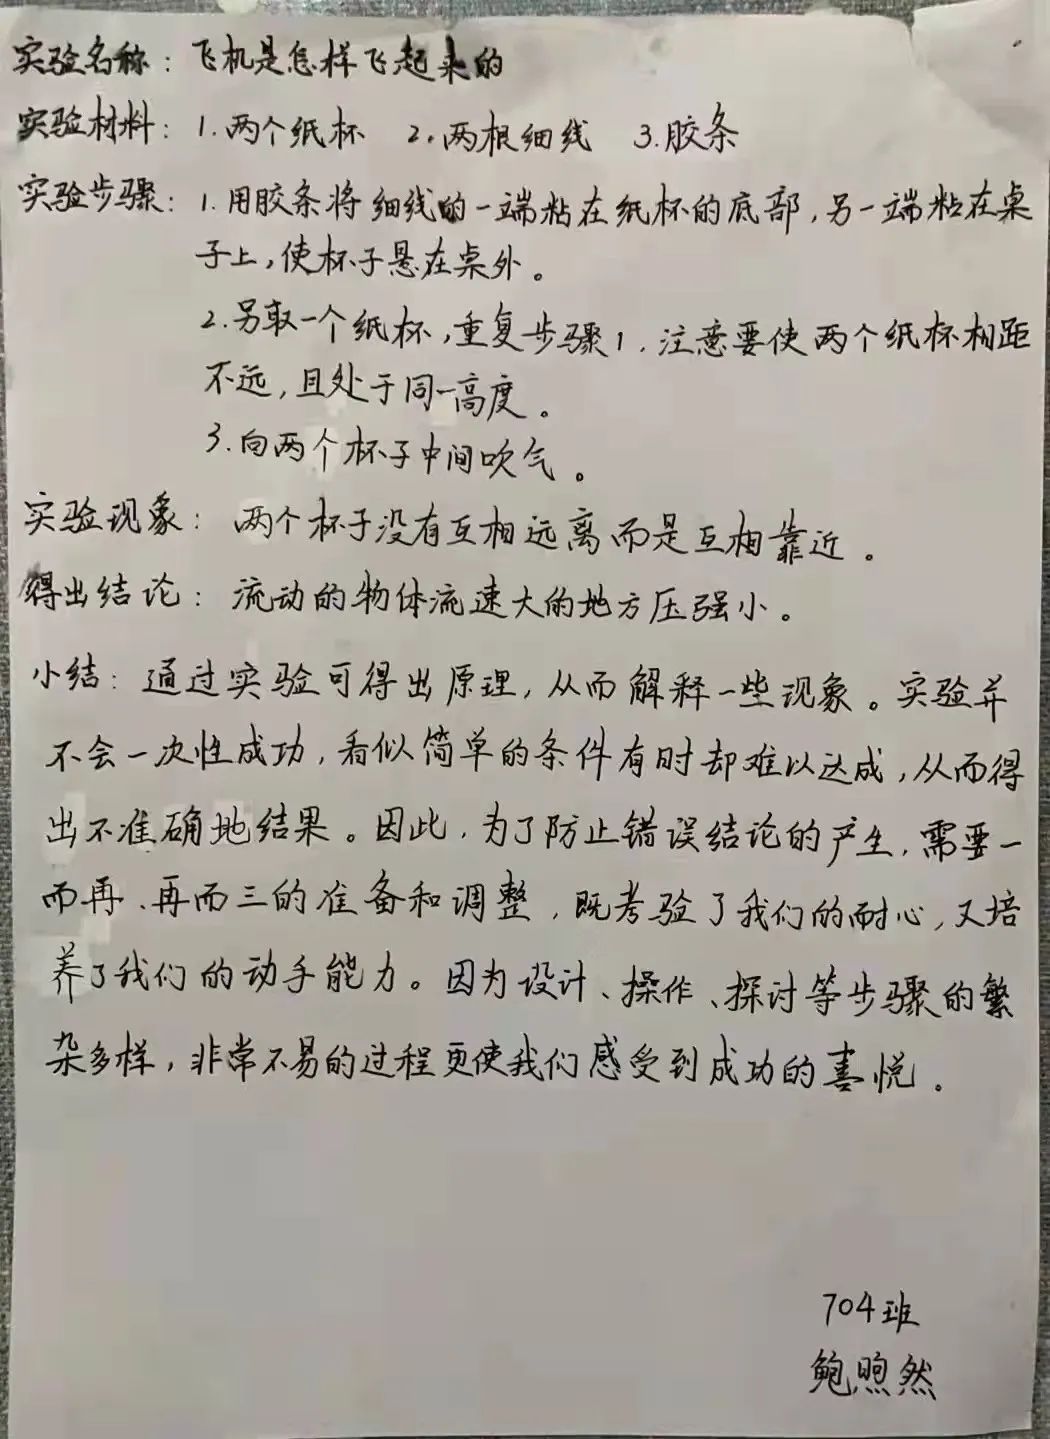 实验名称：飞机是怎样飞起来的
实验材料：1.两个纸杯 2.两根细线 3.胶条
实验步骤：1.用胶条将细线的一端粘在纸杯的底部，另一端粘在桌
子上，使杯子悬在桌外。
2.另取一个纸杯，重复步骤1，注意要使两个纸杯相距
不远，且处于同一高度。
3.向两个杯子中间吹气。
实验现象：两个杯子没有互相远离而是互相靠近。
得出结论：流动的物体流速大的地方压强小。
小结：通过实验可得出原理，从而解释一些现象。实验并
不会一次性成功，看似简单的条件有时却难以达成，从而得
出不准确地结果。因此，为了防止错误结论的产生，需要一
而再、再而三的准备和调整，既考验了我们的耐心，又培
养了我们的动手能力。因为设计、操作、探讨等步骤的繁
杂多样，非常不易的过程更使我们感受到成功的喜悦。
704班
鲍煦然